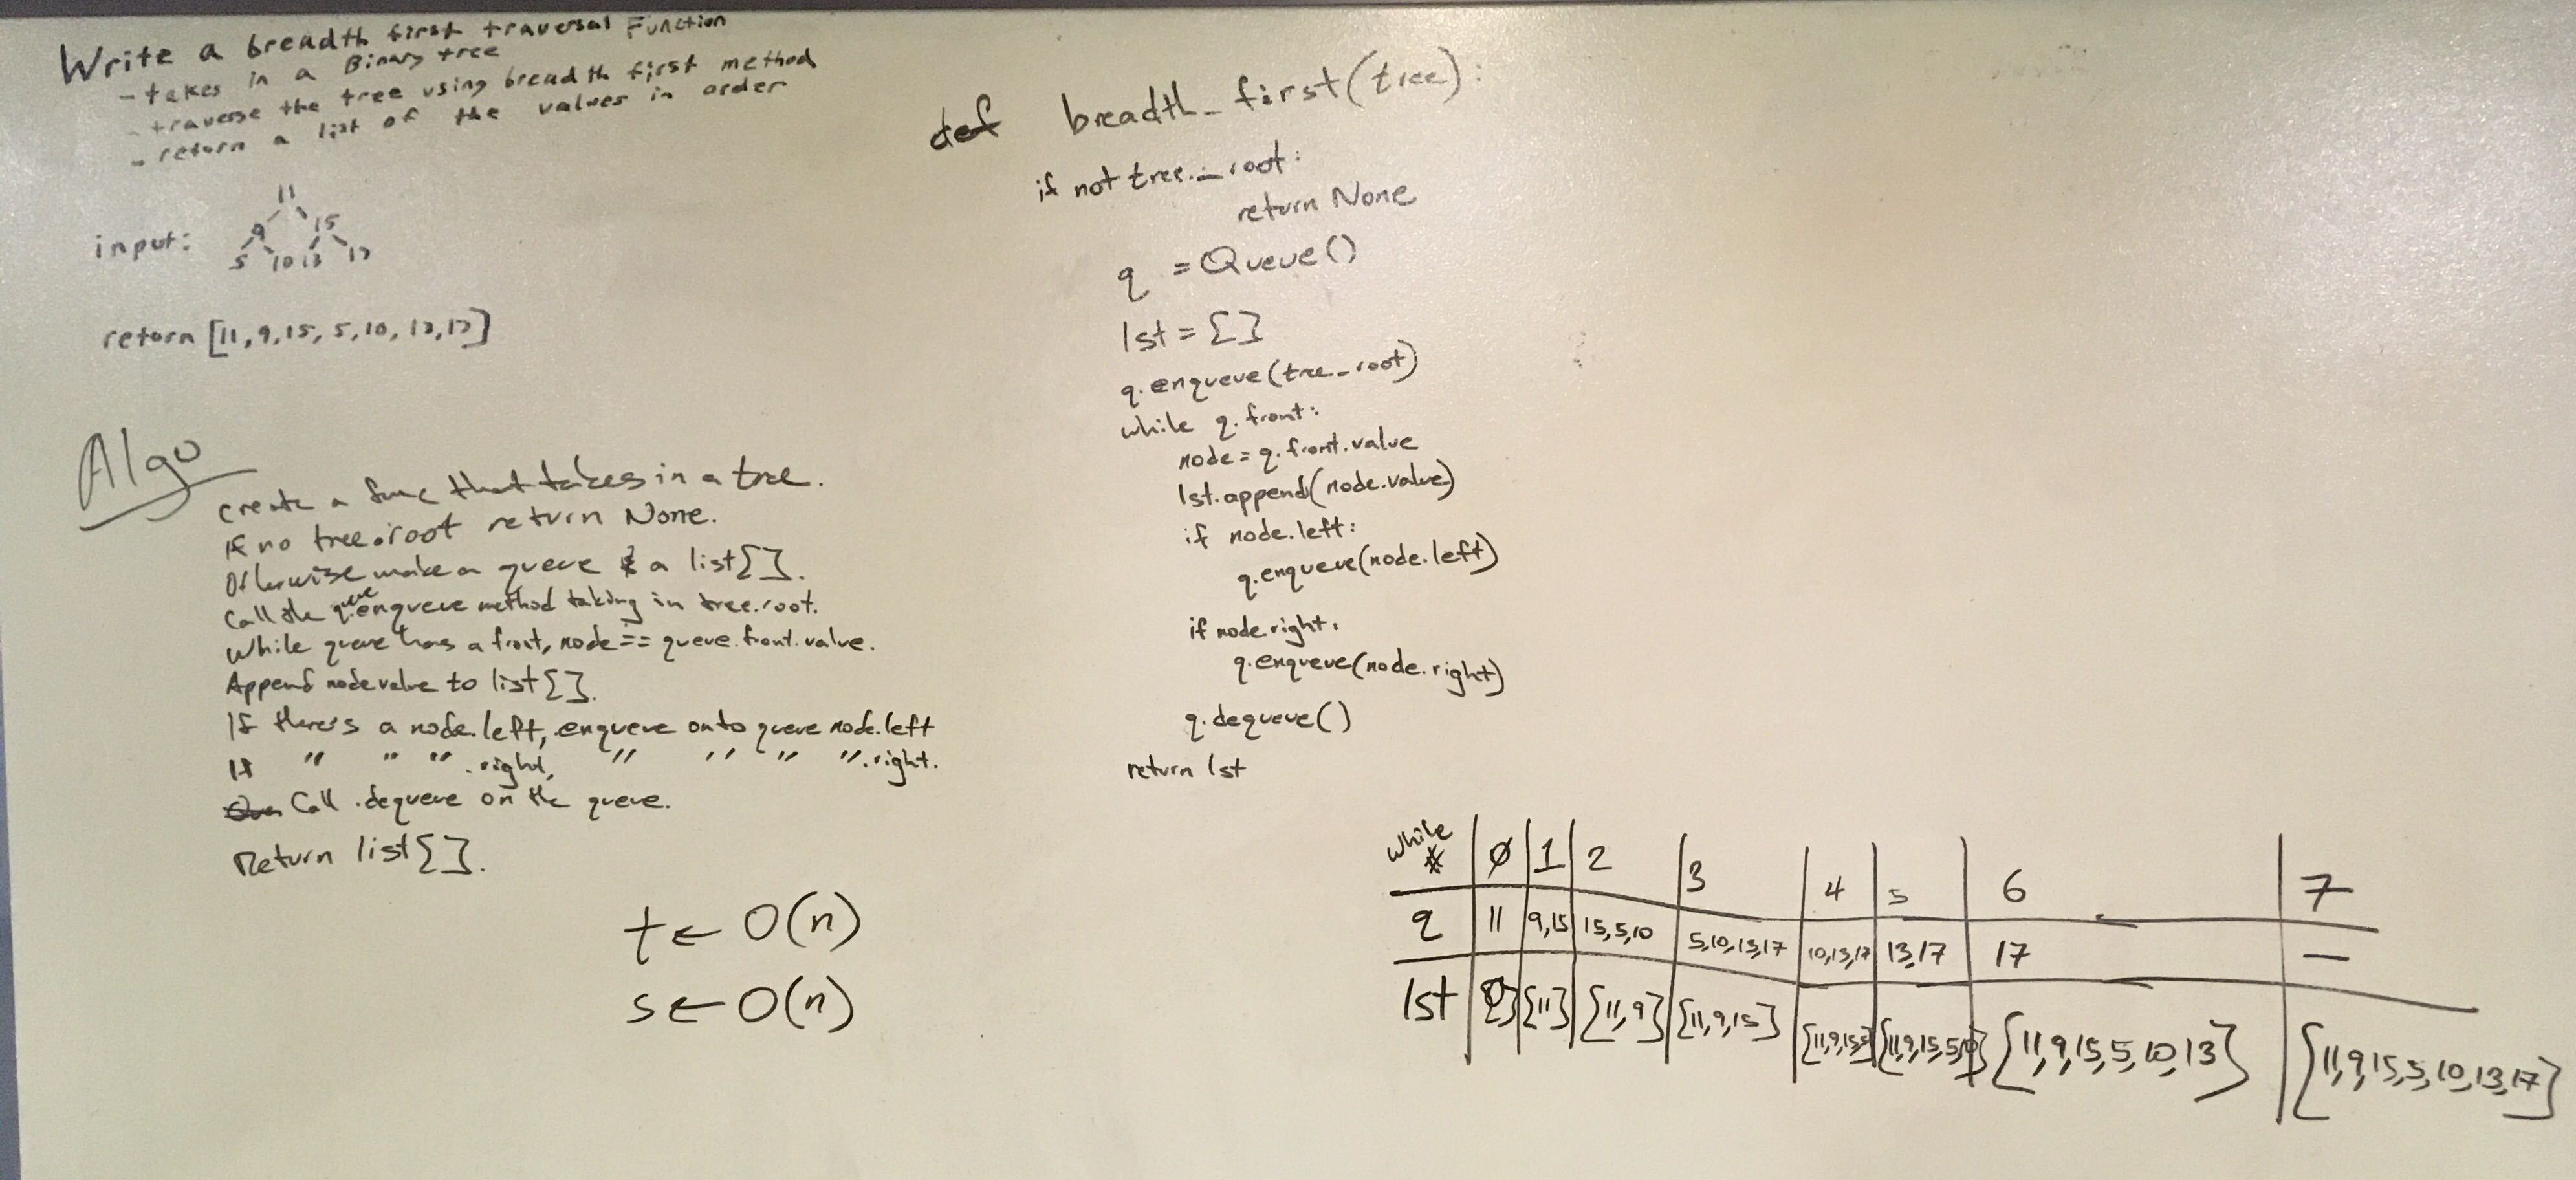 Write a breadth first traversal Function
- takes in a Binary tree
- traverse the tree using breadth first method
- return a list of the values in order
input:
11
9 15
5 10 13 17
return [11, 9, 15, 5, 10, 13, 17]
Algo
Create a func that takes in a tree.
If no tree.root return None.
Otherwise make a queue & a list[].
Call the queue enqueue method taking in tree.root.
While queue has a front, node == queue.front.value.
Append node value to list[].
If there's a node.left, enqueue onto queue node.left
If " " " .right, " " " ".right.
Call .dequeue on the queue.
Return list[].
t ← O(n)
s ← O(n)
def breadth_first(tree):
if not tree._root:
return None
q = Queue()
lst = []
q.enqueue(tree_root)
while q.front:
node = q.front.value
lst.append(node.value)
if node.left:
q.enqueue(node.left)
if node.right:
q.enqueue(node.right)
q.dequeue()
return lst
while # 0 1 2 3 4 5 6 7
q 11 9,15 15,5,10 5,10,13,17 10,13,17 13,17 17 —
lst [] [11] [11,9] [11,9,15] [11,9,15,5] [11,9,15,5,10] [11,9,15,5,10,13] [11,9,15,5,10,13,17]